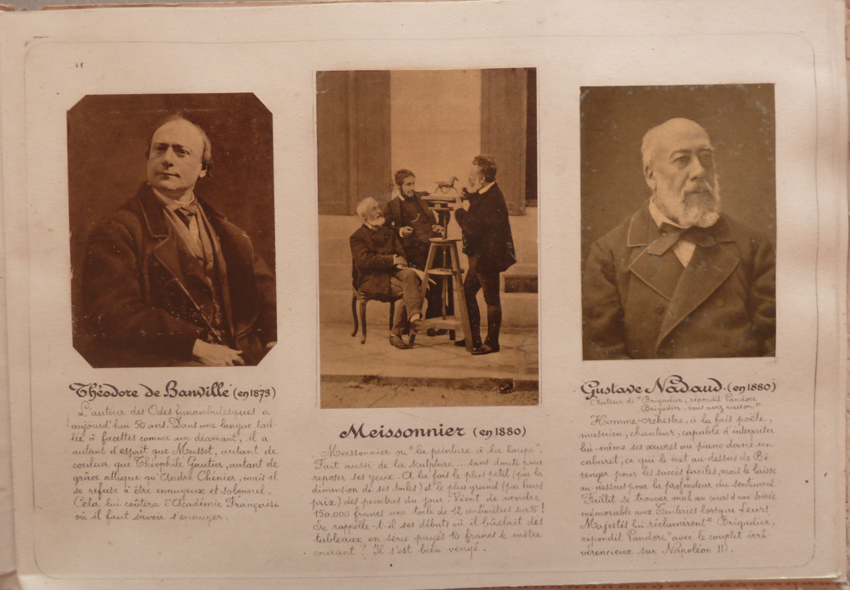 Théodore de Banville (en 1873)
L'auteur des Odes funambulesques a
aujourd'hui 50 ans. Dans une langue tail-
lée à facettes comme un diamant, il a
autant d'esprit que Musset, autant de
couleur que Théophile Gautier, autant de
grâce attique qu'André Chénier, mais il
se refuse à être ennuyeux et solennel.
Cela lui coûtera l'Académie Française
où il faut savoir s'ennuyer.
Meissonnier (en 1880)
Meissonnier ou "la peinture à la loupe".
Fait aussi de la sculpture... sans doute pour
reposer ses yeux. A la fois le plus petit (par la
dimension de ses toiles) et le plus grand (par leurs
prix) des peintres du jour. Vient de vendre
150.000 francs une toile de 12 centimètres sur 8!
Se rappelle-t-il ses débuts où il bâclait des
tableaux en série payés 10 francs le mètre
courant? Il s'est bien vengé.
Gustave Nadaud (en 1880)
Auteur de "Brigadier, répondit Pandore,
Brigadier, vous avez raison."
Homme-orchestre, à la fois poète,
musicien, chanteur, capable d'interpréter
lui-même ses œuvres au piano dans un
cabaret, ce qui le met au-dessus de Bé-
ranger pour les succès faciles, mais le laisse
au-dessous pour la profondeur du sentiment.
Faillit se trouver mal au cours d'une soirée
mémorable aux Tuileries lorsque Leurs
Majestés lui réclamèrent "Brigadier,
répondit Pandore" avec le couplet irré-
vérencieux sur Napoléon III.